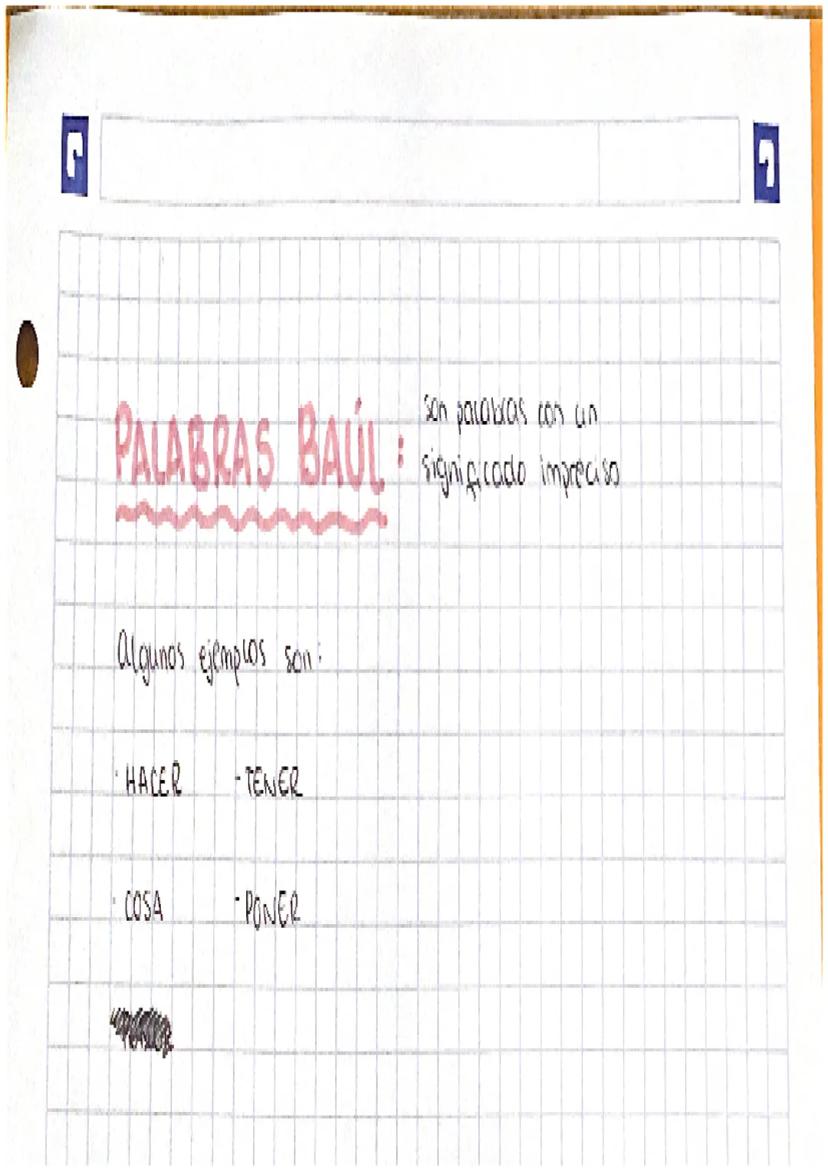 PALABRAS BAÚL: son palabras con un
significado impreciso
Algunos ejemplos son:
· HACER - TENER
· COSA - PONER